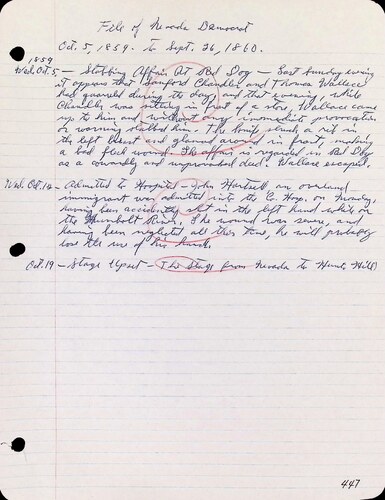 File of Nevada Democrat
Oct. 5, 1859. to Sept. 26, 1860.
1859
Wed. Oct. 5 — Stabbing Affair At Red Dog — Last Sunday evening
it appears that Sanford Chandler and Thomas Wallace
had quarreled during the day, and that evening, while
Chandler was sitting in front of a store, Wallace came
up to him and without any immediate provocation
or warning stabbed him. The knife struck a rib in
the left breast and glanced around in front, making
a bad flesh wound. The affair is regarded in Red Dog
as a cowardly and unprovoked deed. Wallace escaped.
Wed. Oct. 12 — Admitted to Hospital — John Hartsell an overland
immigrant was admitted into the Co. Hosp. on Monday,
having been accidently shot in the left hand while on
the Humboldt River. The wound was severe, and
having been neglected all this time, he will probably
lose the use of his hand.
Oct. 19 — Stage Upset — The Stage from Nevada to Hunts Hill
447